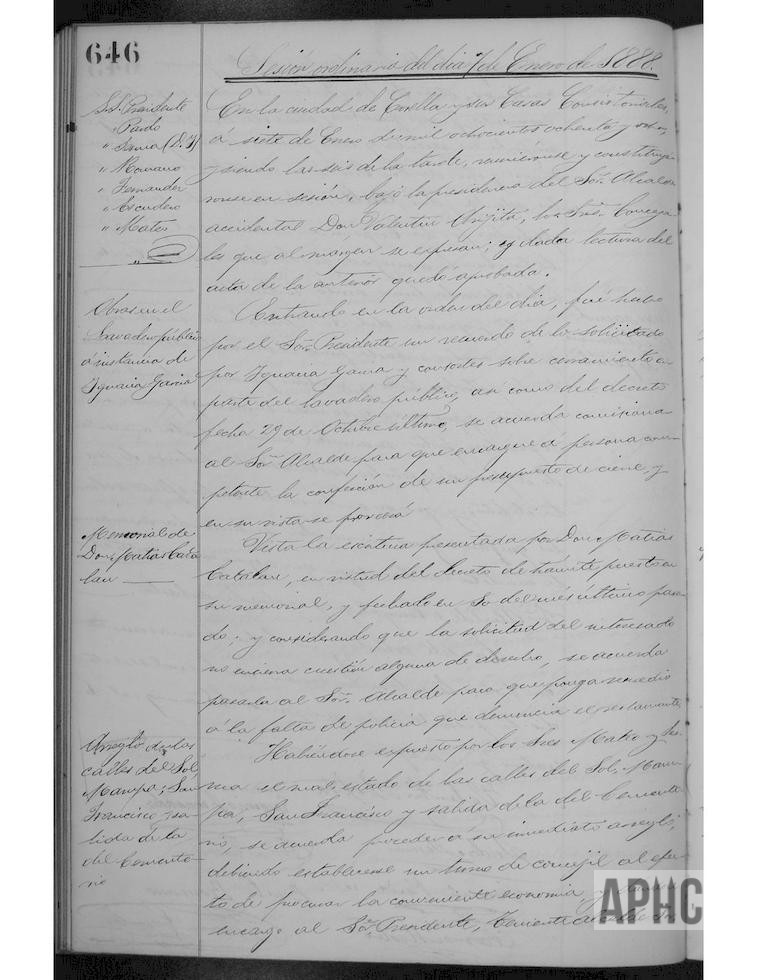 646
Sesión ordinaria del dia 7 de Enero de 1888.
S.S. Presidente
" Pardo
" Sanna (D. J)
" Romano
" Fernandez
" Escudero
" Mateo
En la ciudad de Corella y sus Casas Consistoriales,
á siete de Enero de mil ochocientos ochenta y ocho,
y siendo las seis de la tarde, reuniéronse y constituye-
ronse en sesión, bajo la presidencia del Sor. Alcalde
accidental Don Valentin Arijita, los Sres. Conceja-
les que al margen se expresan; y dada lectura del
acta de la anterior quedó aprobada.
Obras en el
Lavadero público
á instancia de
Ignacia Garcia
Entrando en la orden del dia, fué hecho
por el Sor. Presidente un recuerdo de lo solicitado
por Ignacia y consortes sobre cerramiento en
parte del lavadero público, asi como del decreto
fecha 29 de Octubre último, se acuerda comisionar
al Sor. Alcalde para que encargue á persona com-
petente la confección de un presupuesto de cierre, y
en su vista se proveerá
Memorial de
Don Matias Cata
lan
Vista la escritura presentada por Don Matias
Catalan, en virtud del decreto de trámite puesto en
su memorial, y fechado en 30 del mes último pasa-
do; y considerando que la solicitud del interesado
no encierra cuestión alguna de derecho, se acuerda
pasarla al Sor. Alcalde para que ponga remedio
á la falta de policia que denuncia el reclamante
Arreglo de las
calles del Sol,
Mampa, San
Francisco y sa-
lida de la
del Cemente-
rio
Habiéndose expuesto por los Sres Mateo y
el mal estado de las calles del Sol, Mam-
pa, San Francisco y salida de la del Cemente-
rio, se acuerda proceder á su inmediato arreglo,
debiendo establecerse un turno de concejil al efec-
to de procurar la conveniente economia, y
encargo al Sor. Presidente, Teniente Alcalde
APHC